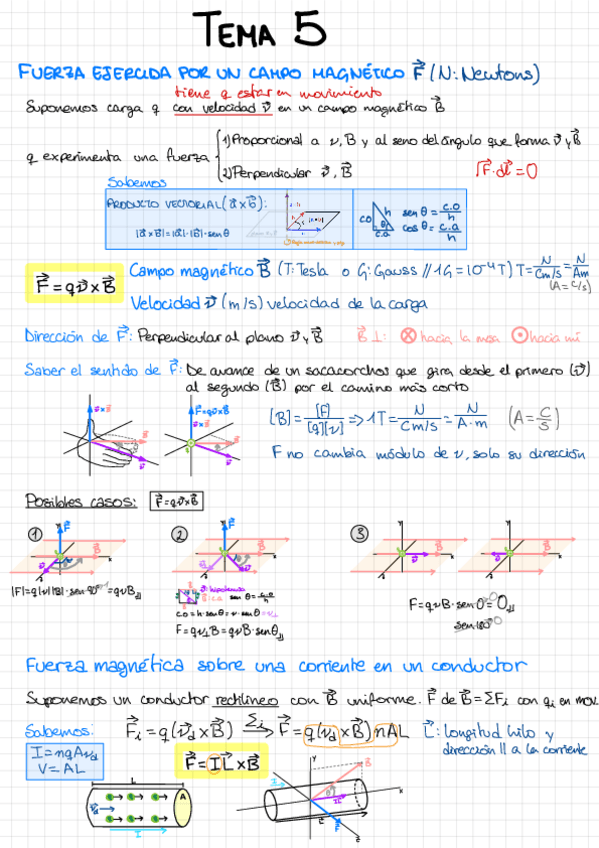 TEMA 5
FUERZA EJERCIDA POR UN CAMPO MAGNÉTICO F⃗ (N: Newtons)
tiene q estar en movimiento
Suponemos carga q con velocidad v⃗ en un campo magnético B⃗
q experimenta una fuerza
1) Proporcional a v, B y al seno del ángulo que forma v⃗ y B⃗
2) Perpendicular v⃗, B⃗
∫F⃗·dl⃗ = 0
Sabemos
PRODUCTO VECTORIAL (a⃗ x b⃗):
|a⃗ x b⃗| = |a⃗|·|b⃗|·sen θ
co h θ c.a
sen θ = c.o/h
cos θ = c.a/h
F⃗ = qv⃗ x B⃗
Campo magnético B⃗ (T: Tesla o G: Gauss // 1G = 10⁻⁴ T) T = N/(C m/s) = N/(Am)
(A = C/s)
Velocidad v⃗ (m/s) velocidad de la carga
Dirección de F⃗: Perpendicular al plano v⃗ y B⃗
B⃗ ⊥: ⊗ hacia la mesa ⊙ hacia mí
Saber el sentido de F⃗: De avance de un sacacorchos que gira desde el primero (v⃗)
al segundo (B⃗) por el camino más corto
v⃗ x B⃗
F⃗ = qv⃗ x B⃗
[B] = [F]/([q][v]) => 1T = N/(C m/s) = N/(A·m) (A = C/s)
F no cambia módulo de v, solo su dirección
Posibles casos: F⃗ = qv⃗ x B⃗
1 2 3
|F| = q|v||B|·sen 90° = qvB
v⃗: hipotenusa
sen θ = c.o/h
co = h·sen θ = v·sen θ = v⊥
F = qv⊥B = qvB·sen θ
F = qvB·sen 0 = 0
sen 180°
Fuerza magnética sobre una corriente en un conductor
Suponemos un conductor rectilíneo con B⃗ uniforme. F de B⃗ = ΣFi con qi en mov.
Sabemos: F⃗i = q(v⃗d x B⃗) Σi→ F⃗ = q(v⃗d x B⃗) nAL L⃗: longitud hilo y
dirección // a la corriente
I = nqAvd
V = AL
F⃗ = I L⃗ x B⃗
L
A
v⃗d
I
y
B
x
F
z